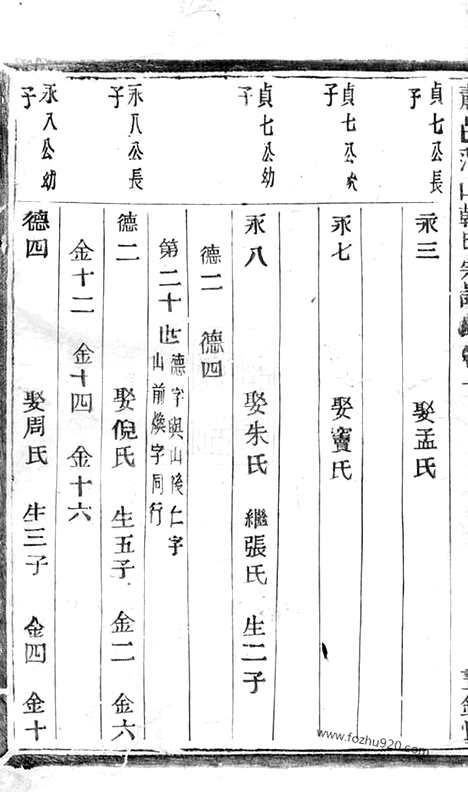 貞七公長子
永三　娶孟氏
貞七公次子
永七　娶竇氏
貞七公幼子
永八　娶朱氏　繼張氏　生二子
德二　德四
第二十世
德字與山後仁字
山前煥字同行
永八公長子
德二　娶倪氏　生五子　金二　金六
金十二　金十四　金十六
永八公幼子
德四　娶周氏　生三子　金四　金十
www.fozhu920.com